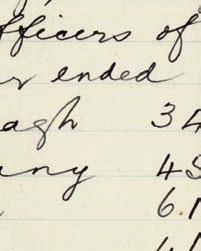 fficers of
r ended
agh 34
any 45
6.1